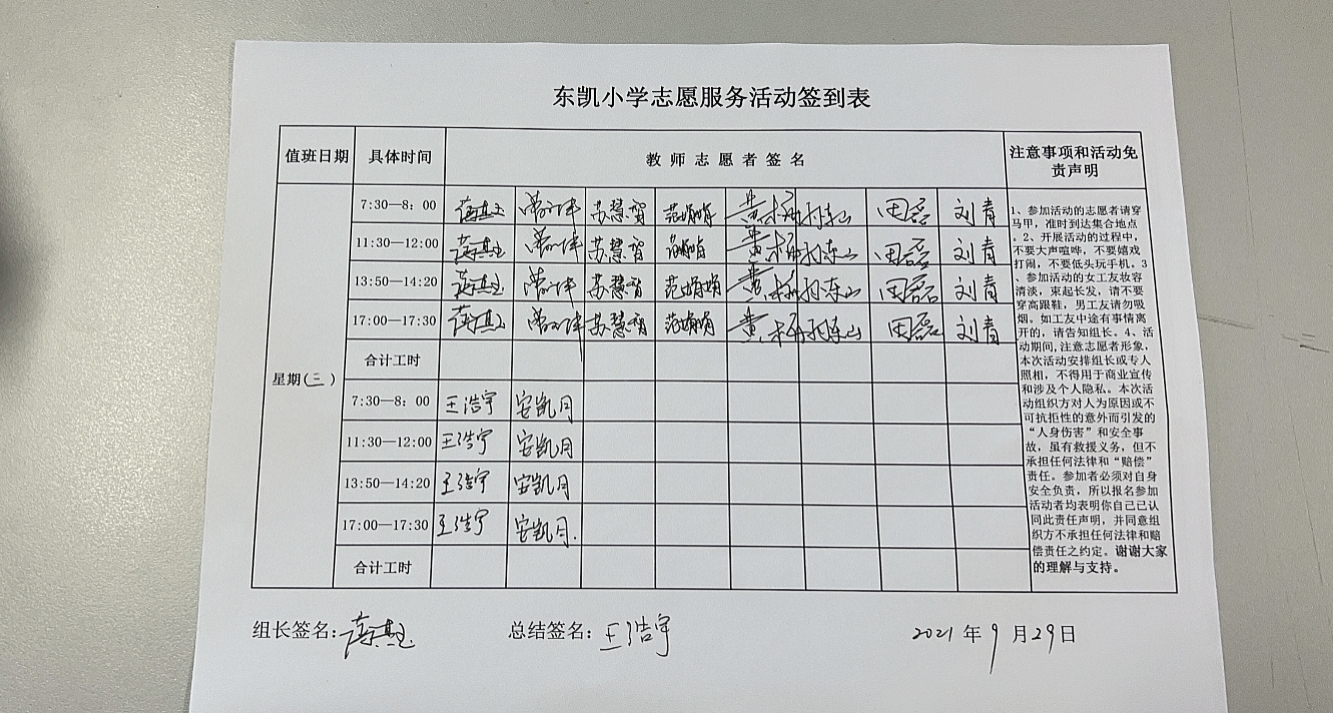 东凯小学志愿服务活动签到表
值班日期 具体时间 教师志愿者签名 注意事项和活动免责声明
星期(三)
7:30—8：00 苏慧智 田磊 刘青
11:30—12:00 苏慧智 田磊 刘青
13:50—14:20 苏慧智 范娟娟 田磊 刘青
17:00—17:30 苏慧智 田磊 刘青
合计工时
7:30—8：00 王浩宇 安凯月
11:30—12:00 王浩宇 安凯月
13:50—14:20 王浩宇 安凯月
17:00—17:30 王浩宇 安凯月.
合计工时
1、参加活动的志愿者请穿
马甲，准时到达集合地点
。2、开展活动的过程中，
不要大声喧哗，不要嬉戏
打闹，不要低头玩手机。3
、参加活动的女工友妆容
清淡，束起长发，请不要
穿高跟鞋，男工友请勿吸
烟。如工友中途有事情离
开的，请告知组长。4、活
动期间,注意志愿者形象，
本次活动安排组长或专人
照相，不得用于商业宣传
和涉及个人隐私。本次活
动组织方对人为原因或不
可抗拒性的意外而引发的
“人身伤害”和安全事
故，虽有救援义务，但不
承担任何法律和“赔偿”
责任。参加者必须对自身
安全负责，所以报名参加
活动者均表明你自己已认
同此责任声明，并同意组
织方不承担任何法律和赔
偿责任之约定。谢谢大家
的理解与支持。
组长签名: 总结签名：王浩宇 2021年9月29日